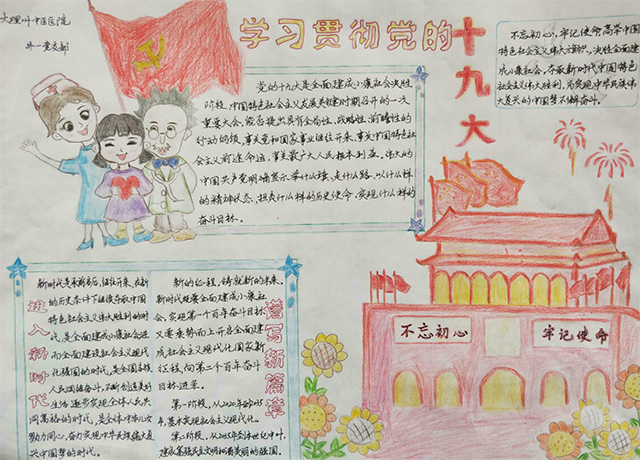 大理州中医医院
外一党支部
学习贯彻党的
十九大
党的十九大是全面建成小康社会决胜
阶段、中国特色社会主义发展关键时期召开的一次
重要大会,能否提出具有全局性、战略性、前瞻性的
行动纲领,事关党和国家事业继往开来,事关中国特色社
会主义前途命运,事关最广大人民根本利益。伟大的
中国共产党明确宣示举什么旗、走什么路、以什么样
的精神状态、担负什么样的历史使命、实现什么样的
奋斗目标。
不忘初心,牢记使命,高举中国
特色社会主义伟大旗帜,决胜全面建
成小康社会,夺取新时代中国特色
社会主义伟大胜利,为实现中华民族伟
大复兴的中国梦不懈奋斗。
迈入新时代
新时代是承前启后、继往开来、在新
的历史条件下继续夺取中国
特色社会主义伟大胜利的时
代,是全面建成小康社会进
而全面建设社会主义现代
化强国的时代,是全国各族
人民团结奋斗、不断创造美好
生活逐步实现全体人民共
同富裕的时代,是全体中华儿女
勠力同心、奋力实现中华民族伟大复
兴中国梦的时代。
谱写新篇章
新的征程,铸就新的未来。
新时代既要全面建成小康社
会、实现第一个百年奋斗目标,
又要乘势而上开启全面建
成社会主义现代化国家新
征程,向第二个百年奋斗
目标进军。
第一阶段,从2020年到2035
年,基本实现社会主义现代化。
第二阶段,从2035年到本世纪中叶,
建成富强民主文明和谐美丽的强国。
不忘初心
牢记使命